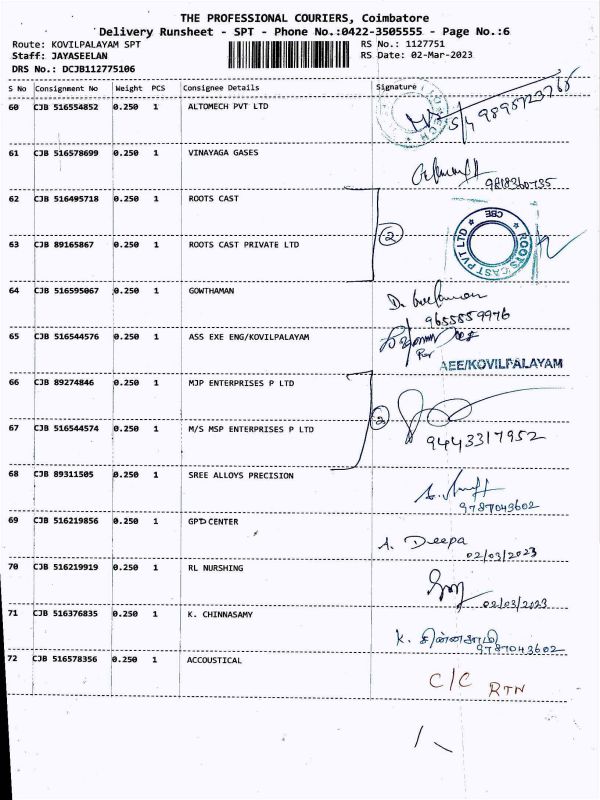 THE PROFESSIONAL COURIERS, Coimbatore
Delivery Runsheet - SPT - Phone No.:0422-3505555 - Page No.:6
Route: KOVILPALAYAM SPT RS No.: 1127751
Staff: JAYASEELAN RS Date: 02-Mar-2023
DRS No.: DCJB112775106
S No Consignment No Weight PCS Consignee Details Signature
60 CJB 516554852 0.250 1 ALTOMECH PVT LTD
61 CJB 516578699 0.250 1 VINAYAGA GASES
9818360735
62 CJB 516495718 0.250 1 ROOTS CAST
2
ROOTS CAST PVT LTD CBE
63 CJB 89165867 0.250 1 ROOTS CAST PRIVATE LTD
64 CJB 516595067 0.250 1 GOWTHAMAN
9655859976
65 CJB 516544576 0.250 1 ASS EXE ENG/KOVILPALAYAM
AEE/KOVILPALAYAM
66 CJB 89274846 0.250 1 MJP ENTERPRISES P LTD
2
67 CJB 516544574 0.250 1 M/S MSP ENTERPRISES P LTD
9443317952
68 CJB 89311505 0.250 1 SREE ALLOYS PRECISION
9787043602
69 CJB 516219856 0.250 1 GPD CENTER
A. Deepa
02/03/2023
70 CJB 516219919 0.250 1 RL NURSHING
02/03/2023
71 CJB 516376835 0.250 1 K. CHINNASAMY
K. சின்னசாமி
9787043602
72 CJB 516578356 0.250 1 ACCOUSTICAL
C/C RTN